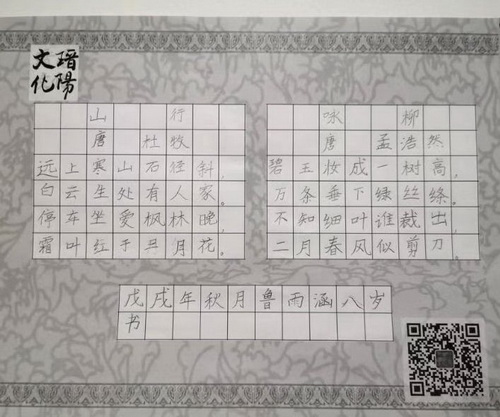 陽
文化
山行
唐 杜牧
远上寒山石径斜，
白云生处有人家。
停车坐爱枫林晚，
霜叶红于三月花。
咏柳
唐 孟浩然
碧玉妆成一树高，
万条垂下绿丝绦。
不知细叶谁裁出，
二月春风似剪刀。
戊戌年秋月鲁雨涵八岁
书